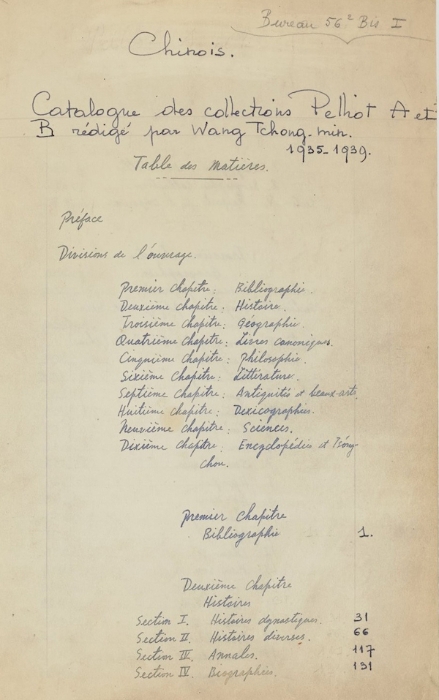 Bureau 56² Bis I
Chinois.
Catalogue des collections Pelliot A et
B rédigé par Wang Tchong-min.
1935-1939.
Table des Matières.
Préface
Divisions de l'ouvrage
Premier Chapitre: Bibliographie.
Deuxième chapitre. Histoire.
Troisième Chapitre: Géographie.
Quatrième Chapitre: Livres canoniques.
Cinquième Chapitre: Philosophie.
Sixième Chapitre: Littérature.
Septième Chapitre: Antiquités et beaux-arts.
Huitième chapitre: Lexicographies.
Neuvième chapitre: Sciences.
Dixième Chapitre: Encyclopédies et Ts'ong-
chou.
Premier Chapitre
Bibliographie 1.
Deuxième Chapitre
Histoires
Section I. Histoires dynastiques. 31
Section II. Histoires diverses. 66
Section III. Annales. 117
Section IV. Biographies. 131